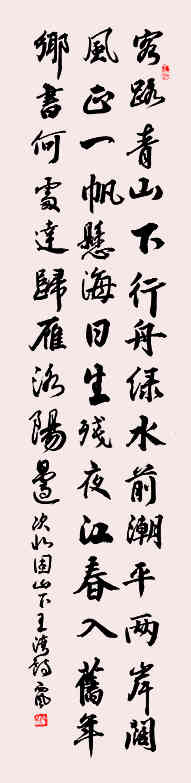 客路青山下行舟绿水前潮平两岸闊
風正一帆懸海日生殘夜江春入舊年
鄉書何處達歸雁洛陽邊 次北固山下王湾詩